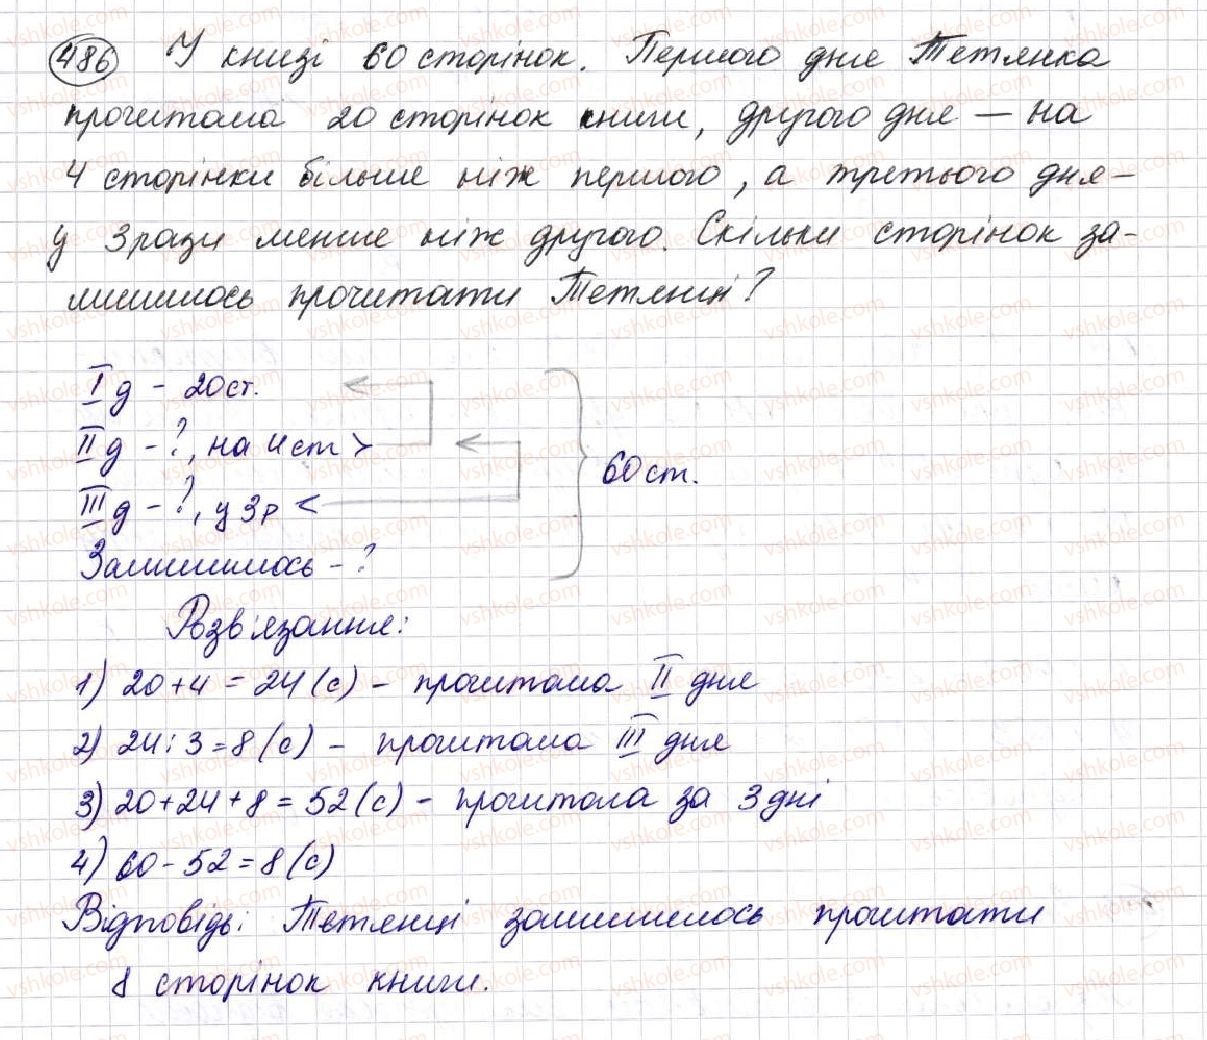 486 У книзі 60 сторінок. Першого дня Тетянка
прочитала 20 сторінок книги, другого дня — на
4 сторінки більше ніж першого, а третього дня -
у 3 рази менше ніж другого. Скільки сторінок за-
лишилось прочитати Тетянці?
I д - 20 ст.
II д - ?, на 4 ст >
III д - ?, у 3 р <
60 ст.
Залишилось - ?
Розв'язання:
1) 20 + 4 = 24 (с) - прочитала II дня
2) 24 : 3 = 8 (с) - прочитала III дня
3) 20 + 24 + 8 = 52 (с) - прочитала за 3 дні
4) 60 - 52 = 8 (с)
Відповідь: Тетянці залишилось прочитати
8 сторінок книги.
vshkole.com